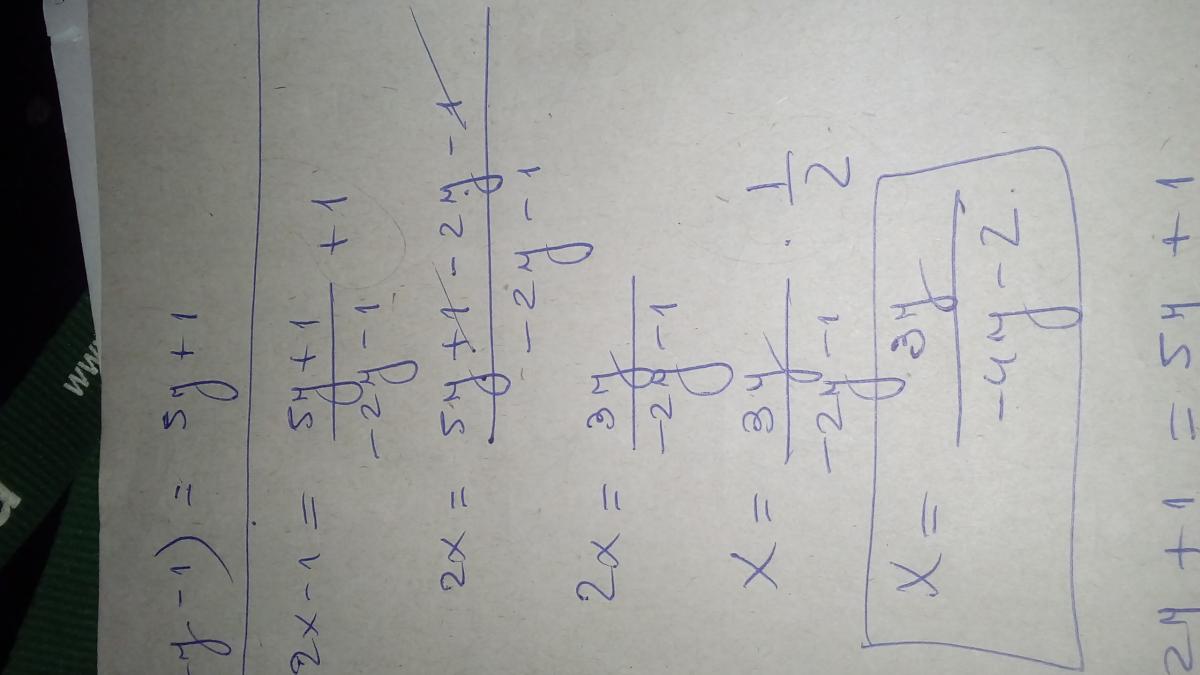 y - 1) = 5y + 1
2x - 1 = \frac{5y + 1}{-2y - 1} + 1
2x = \frac{5y + 1 - 2y - 1}{-2y - 1}
2x = \frac{3y}{-2y - 1}
x = \frac{3y}{-2y - 1} \cdot \frac{1}{2}
x = \frac{3y}{-4y - 2}
2y + 1 = 5y + 1
www